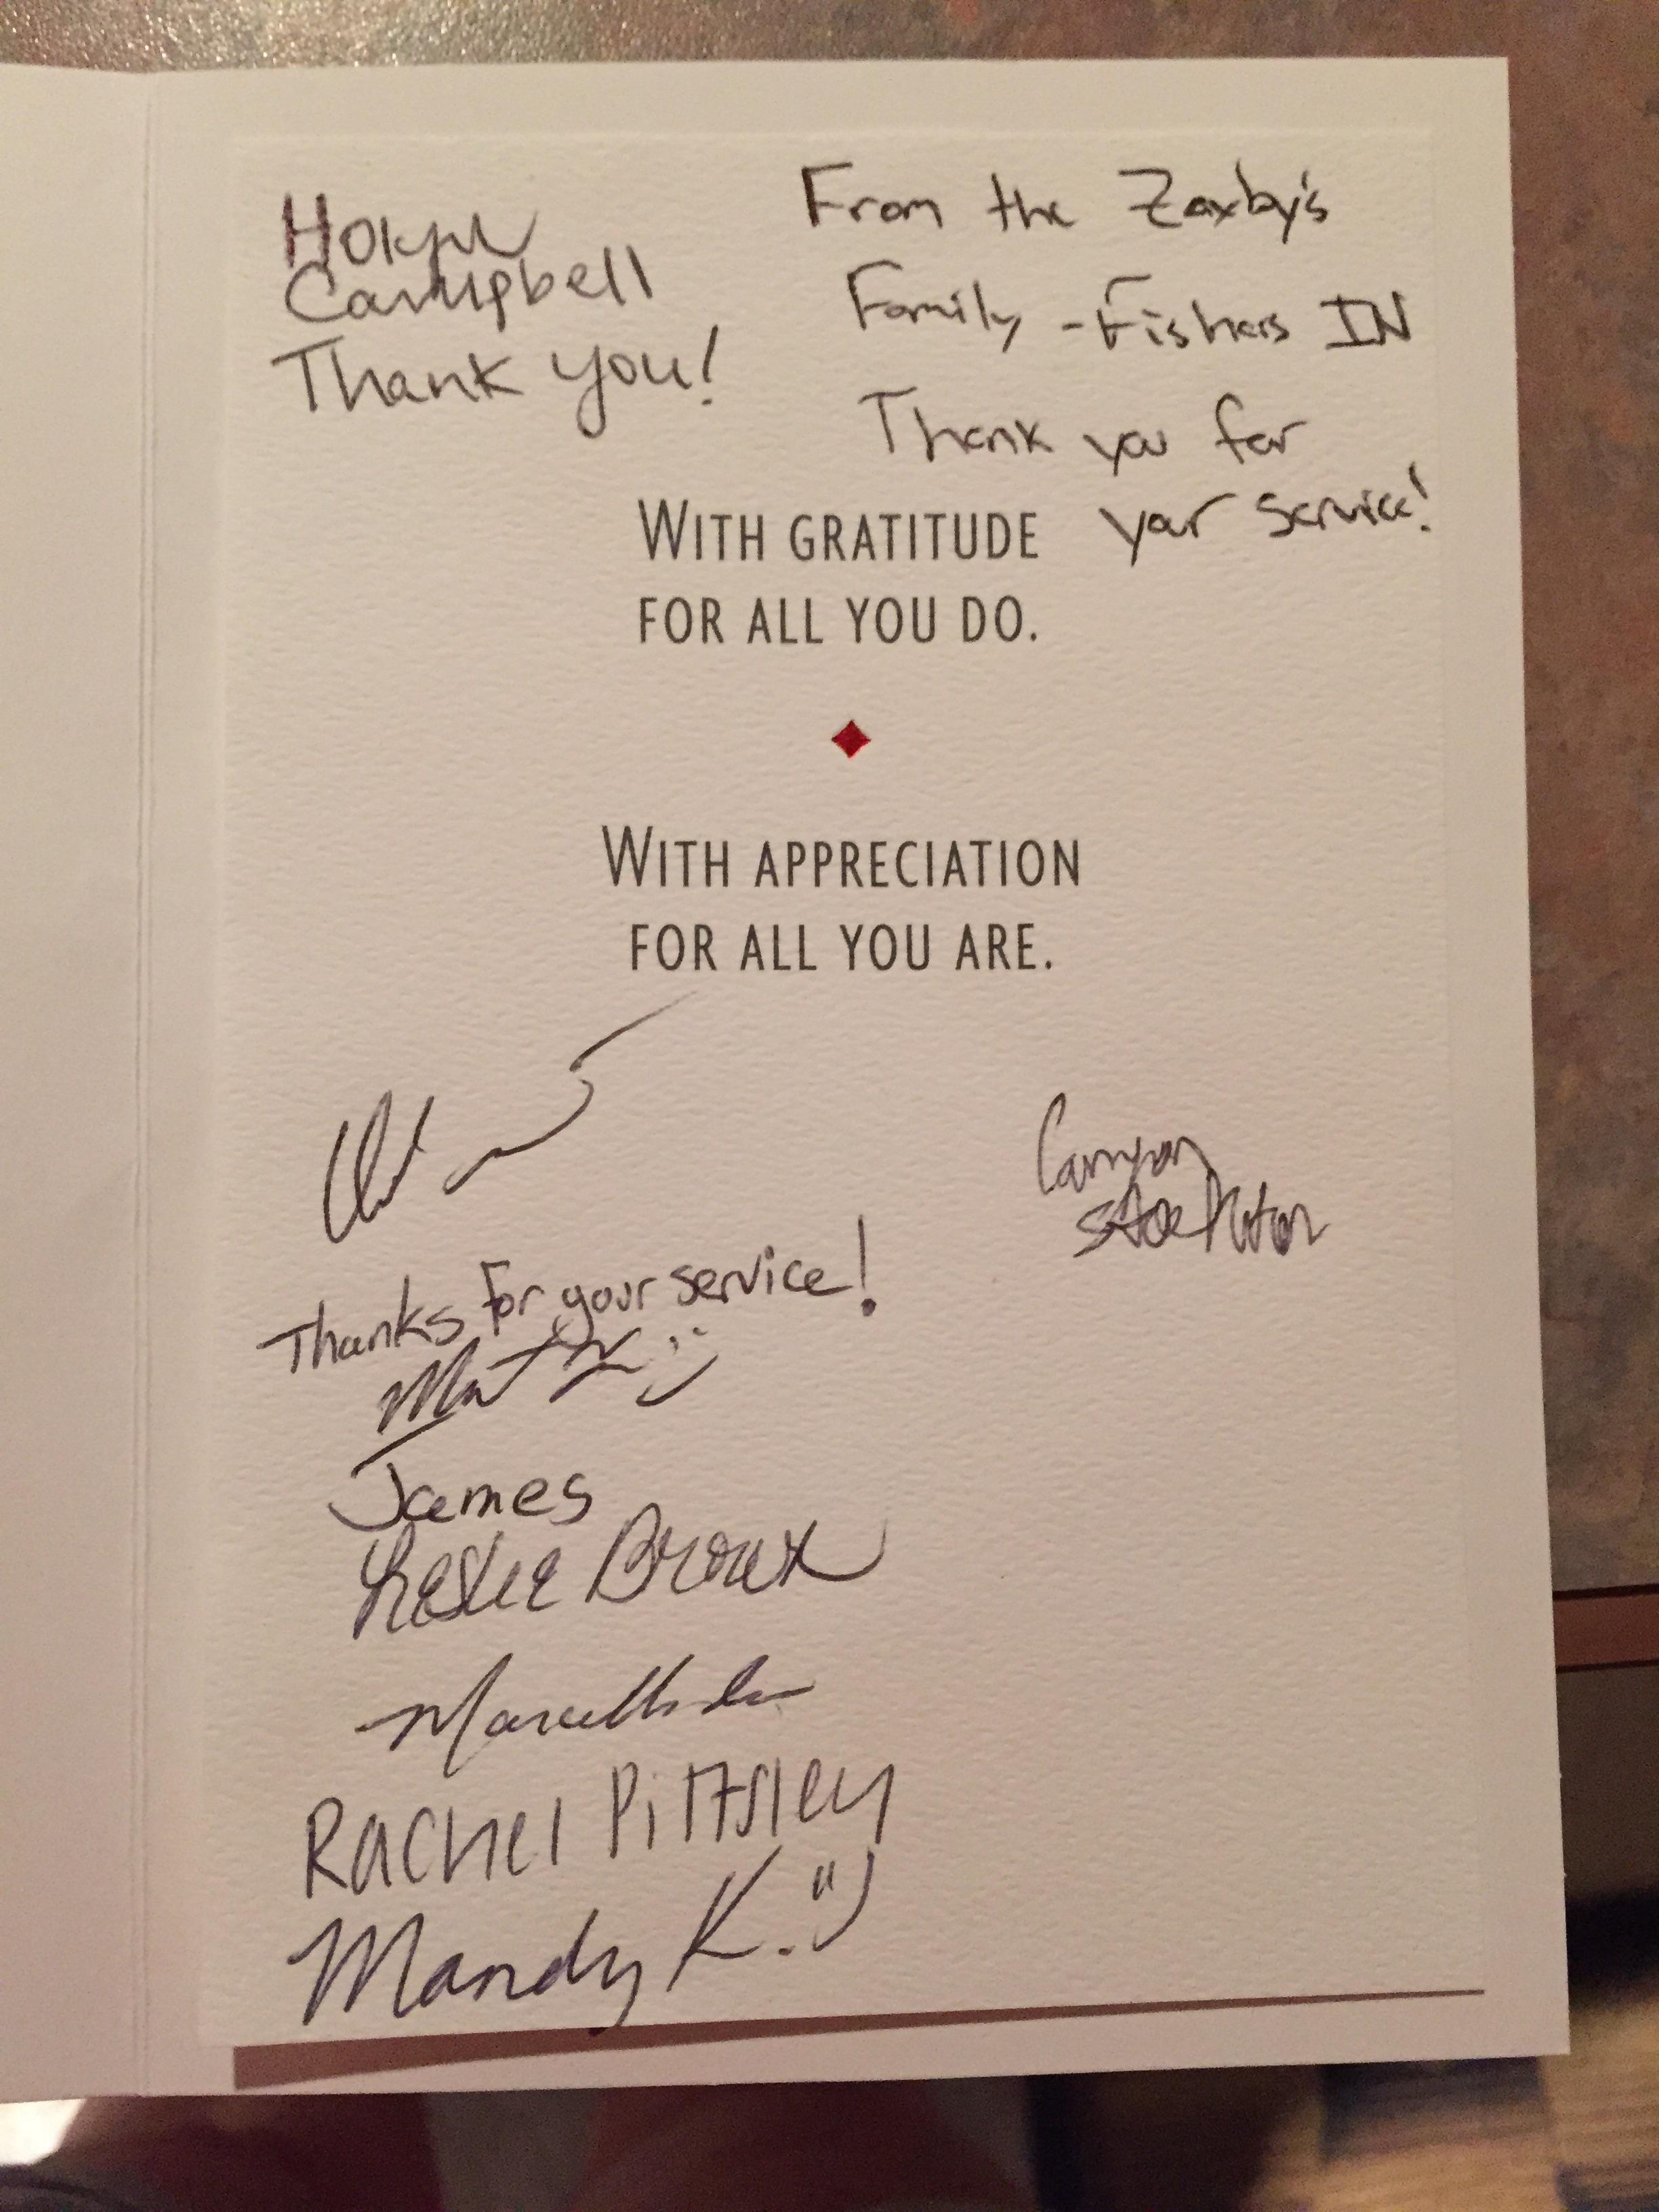 Campbell
Thank you!
From the Zaxby's
Family - Fishers IN
Thank you for
your service!
WITH GRATITUDE
FOR ALL YOU DO.
WITH APPRECIATION
FOR ALL YOU ARE.
Thanks for your service!
:)
James
Leslie
Rachel Pittsley
Mandy K. :)